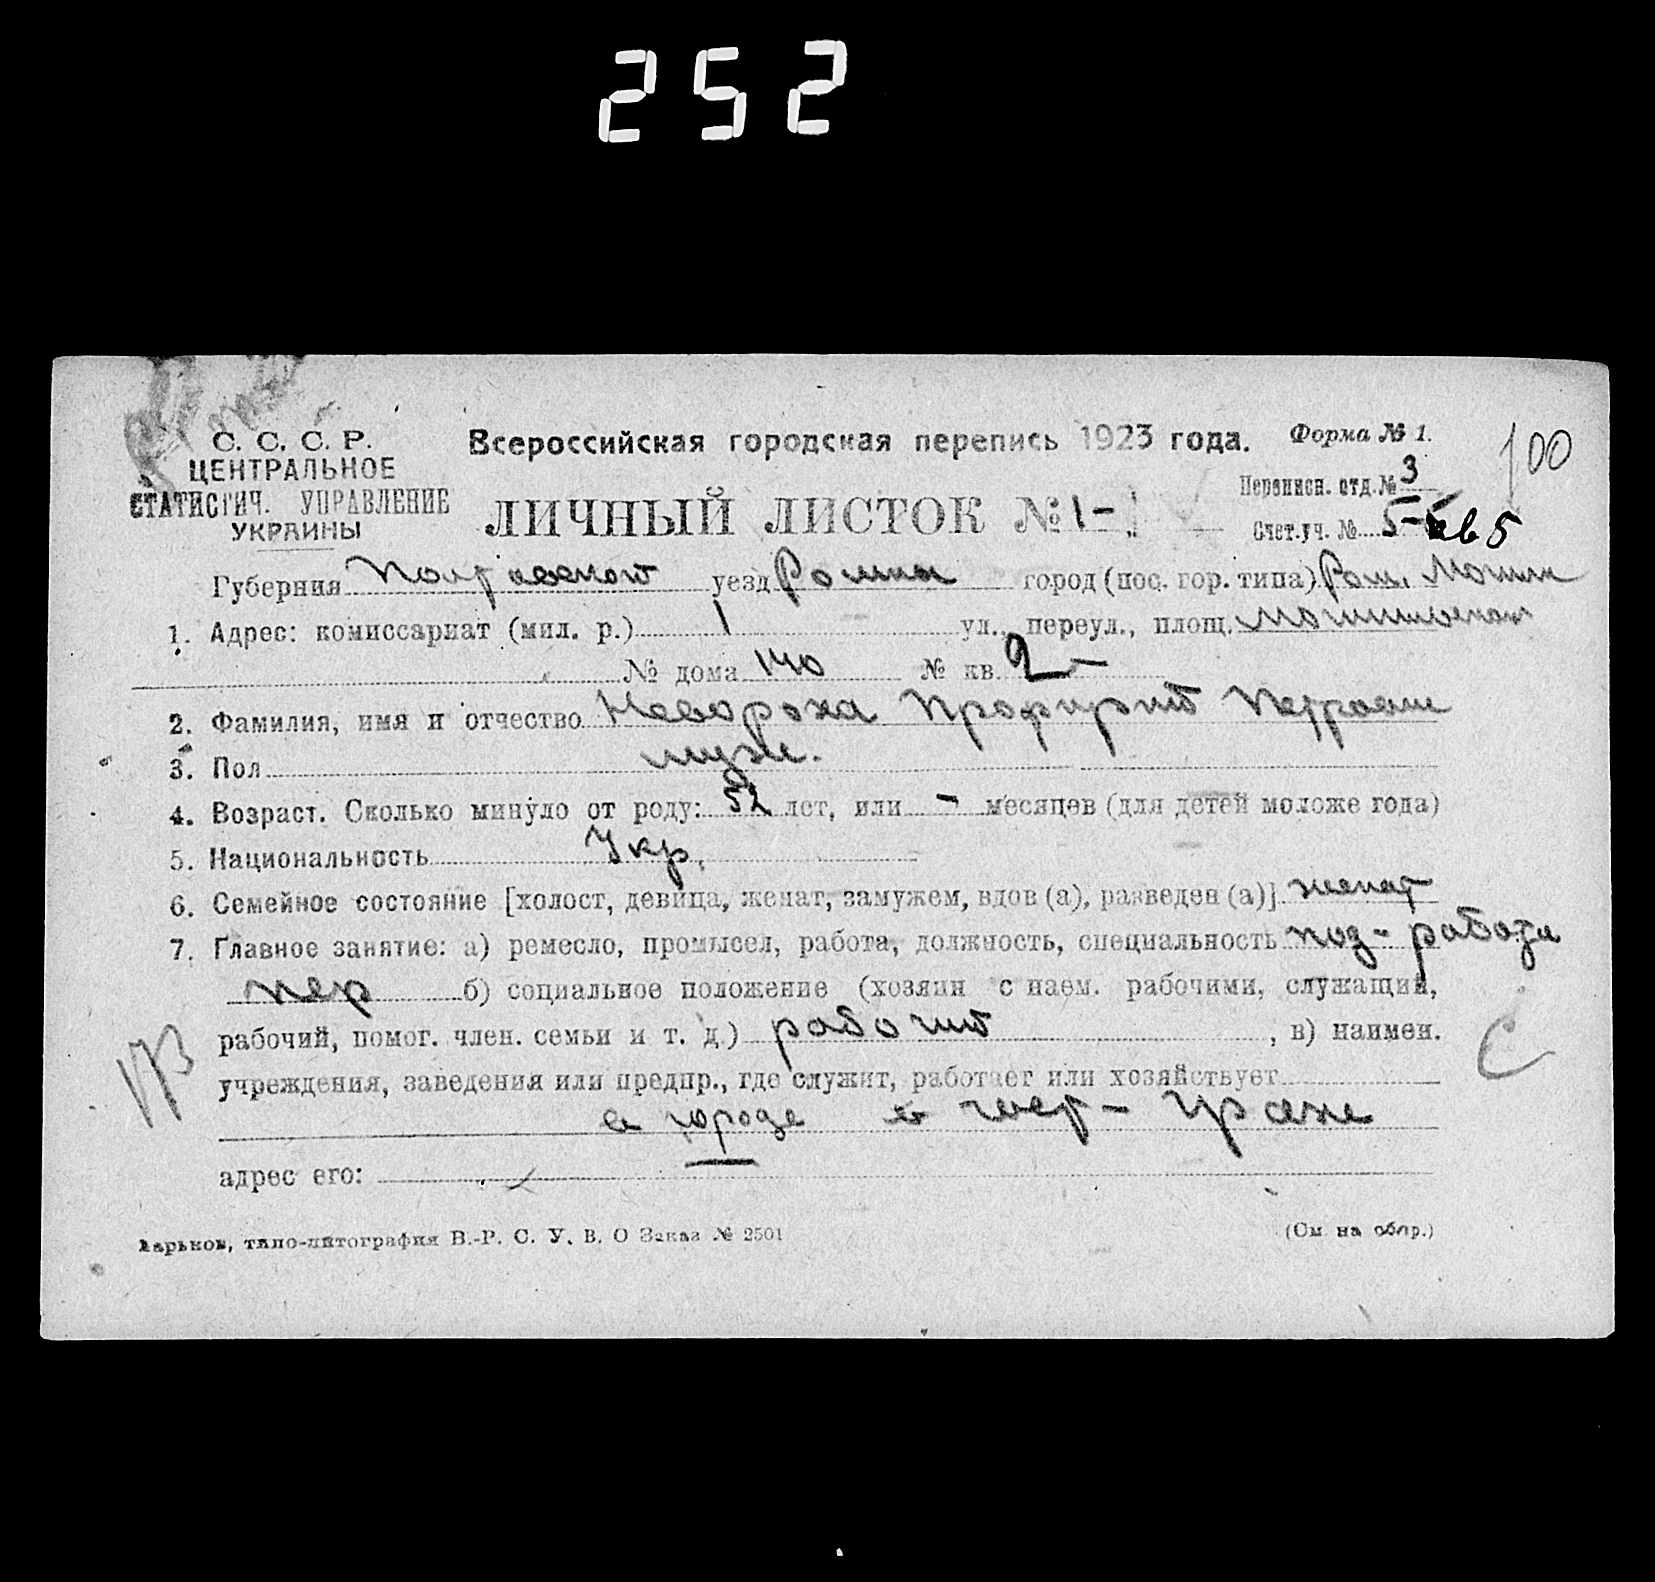 252
С. С. С. Р.
ЦЕНТРАЛЬНОЕ
СТАТИСТИЧ. УПРАВЛЕНИЕ
УКРАИНЫ
Всероссийская городская перепись 1923 года.
Форма № 1.
100
ЛИЧНЫЙ ЛИСТОК № 1-
Переписн. отд. № 3
Счет. уч. № 5
Губерния Полтавской уезд Ромны город (пос. гор. типа) Ром.
1. Адрес: комиссариат (мил. р.) 1 ул., переул., площ.
№ дома 140 № кв. 2
2. Фамилия, имя и отчество Петрович
3. Пол муж.
4. Возраст. Сколько минуло от роду: 52 лет, или - месяцев (для детей моложе года)
5. Национальность Укр.
6. Семейное состояние [холост, девица, женат, замужем, вдов (а), разведен (а)] женат
7. Главное занятие: а) ремесло, промысел, работа, должность, специальность
б) социальное положение (хозяин с наем. рабочими, служащий,
рабочий, помог. член. семьи и т. д.) рабочий , в) наимен.
учреждения, заведения или предпр., где служит, работает или хозяйствует
в городе
адрес его:
Харьков, типо-литография В.-Р. С. У. В. О Заказ № 2501
(См на обор.)